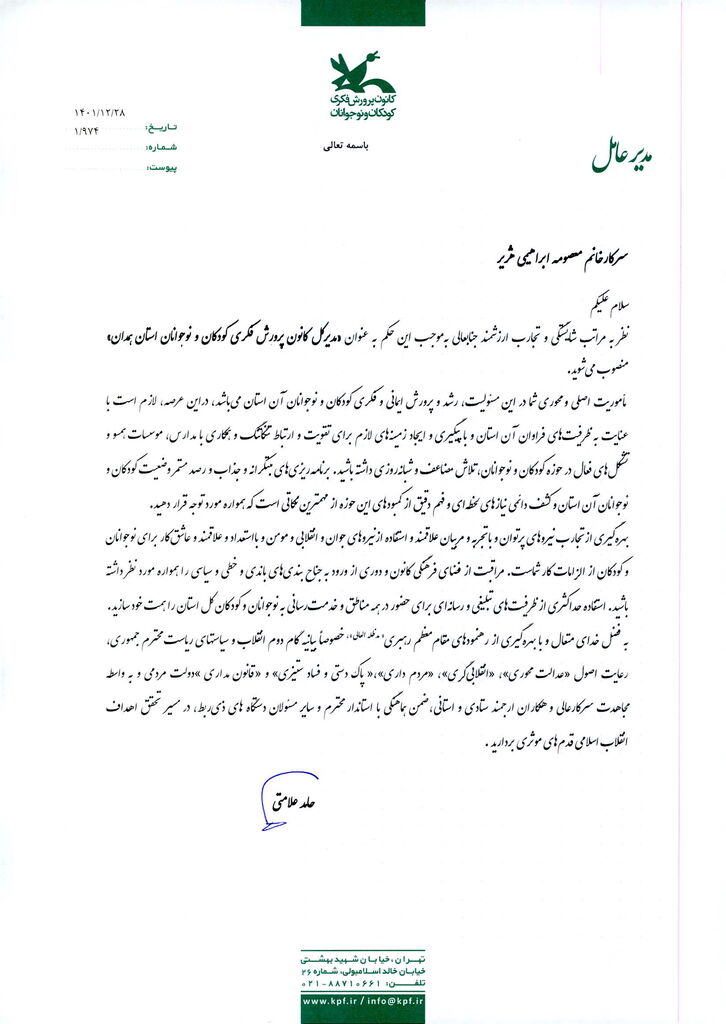 کانون پرورش فکری
کودکان و نوجوانان
باسمه تعالی
مدیر عامل
۱۴۰۱/۱۲/۲۸
تاریخ:
۱/۹۷۴
شماره:
پیوست:
سرکار خانم معصومه ابراهیمی هژیر
سلام علیکم
نظر به مراتب شایستگی و تجارب ارزشمند جنابعالی به‌موجب این حکم به عنوان «مدیرکل کانون پرورش فکری کودکان و نوجوانان استان همدان»
منصوب می‌شوید.
مأموریت اصلی و محوری شما در این مسئولیت، رشد و پرورش ایمانی و فکری کودکان و نوجوانان آن استان می‌باشد، دراین عرصه، لازم است با
عنایت به ظرفیت‌های فراوان آن استان و با پیگیری و ایجاد زمینه‌های لازم برای تقویت و ارتباط تنگاتنگ و همکاری با مدارس، موسسات همسو و
تشکل‌های فعال در حوزه کودکان و نوجوانان، تلاش مضاعف و شبانه‌روزی داشته باشید. برنامه‌ریزی‌های مبتکرانه و جذاب و رصد مستمر وضعیت کودکان و
نوجوانان آن استان و کشف دائمی نیازهای لحظه‌ای و فهم دقیق از کمبودهای این حوزه از مهمترین نکاتی است که همواره مورد توجه قرار دهید.
بهره‌گیری از تجارب نیروهای پرتوان و باتجربه و مربیان علاقمند و استفاده ازنیروهای جوان و انقلابی و مومن و بااستعداد و علاقمند و عاشق کار برای نوجوانان
و کودکان از الزامات کار شماست. مراقبت از فضای فرهنگی کانون و دوری از ورود به جناح بندی‌های باندی و خطی و سیاسی را همواره مورد نظر داشته
باشید. استفاده حداکثری از ظرفیت‌های تبلیغی و رسانه‌ای برای حضور در همه مناطق و خدمت‌رسانی به نوجوانان و کودکان کل استان را همت خود سازید.
به فضل خدای متعال و با بهره‌گیری از رهنمودهای مقام معظم رهبری «مدظله العالی»، خصوصاً بیانیه گام دوم انقلاب و سیاستهای ریاست محترم جمهوری،
رعایت اصول «عدالت محوری»، «انقلابی‌گری»، «مردم داری»،« پاک دستی و فساد ستیزی» و «قانون مداری »دولت مردمی و به واسطه
مجاهدت سرکارعالی و همکاران ارجمند ستادی و استانی،ضمن هماهنگی با استاندار محترم و سایر مسئولان دستگاه های ذی‌ربط، در مسیر تحقق اهداف
انقلاب اسلامی قدم‌های موثری بردارید .
حامد علامتی
تهران، خیابان شهید بهشتی
خیابان خالد اسلامبولی، شماره ۲۶
تلفن: ۸۸۷۱۰۶۶۱-۰۲۱
www.kpf.ir / info@kpf.ir